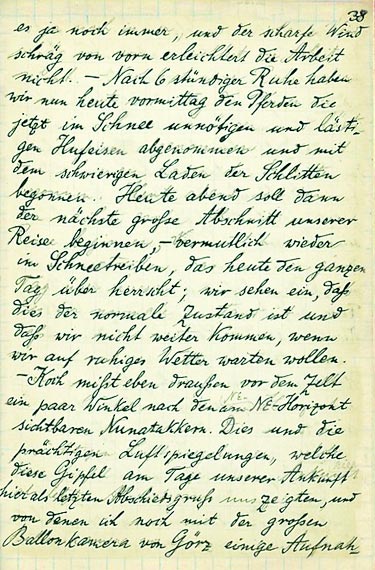 38
es ja noch immer, und der scharfe Wind
schräg von vorn erleichtert die Arbeit
nicht. – Nach 6 stündiger Ruhe haben
wir nun heute vormittag den Pferden die
jetzt im Schnee unnötigen und lästi-
gen Hufeisen abgenommen und mit
dem schwierigen Laden der Schlitten
begonnen. Heute abend soll dann
der nächste große Abschnitt unserer
Reise beginnen, – vermutlich wieder
im Schneetreiben, das heute den ganzen
Tag über herrscht; wir sehen ein, daß
dies der normale Zustand ist und
daß wir nicht weiter kommen, wenn
wir auf ruhiges Wetter warten wollen.
– Koch mißt eben draußen vor dem Zelt
ein paar Winkel nach den am NE-Horizont
sichtbaren Nunatakkern. Dies und die
prächtigen Luftspiegelungen, welche
diese Gipfel am Tage unserer Ankunft
hier als letzten Abschiedsgruß uns zeigten, und
von denen ich noch mit der großen
Ballonkamera von Görz einige Aufnah-